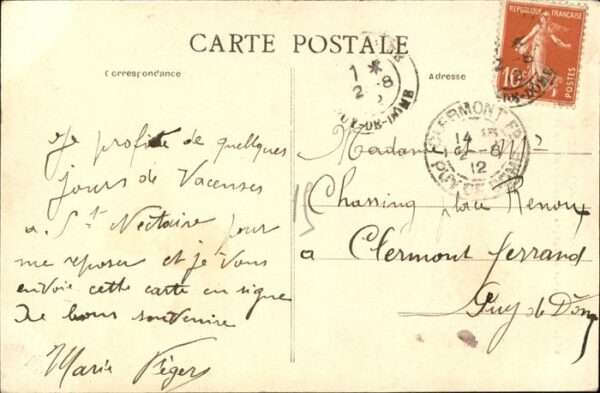 CARTE POSTALE
Correspondance
Adresse
REPUBLIQUE FRANÇAISE
10c
POSTES
1 *
2 -8
12
PUY-DE-DÔME
CLERMONT-FD
14
2 -8
12
PUY-DE-DÔME
Je profite de quelques
jours de Vacenses
a St Nectaire pour
me reposer et je vous
envoie cette carte en signe
De bons souvenire
Marie
Madame et Mr
Chassing place Renoux
a Clermont ferrand
Puy de Dome
15